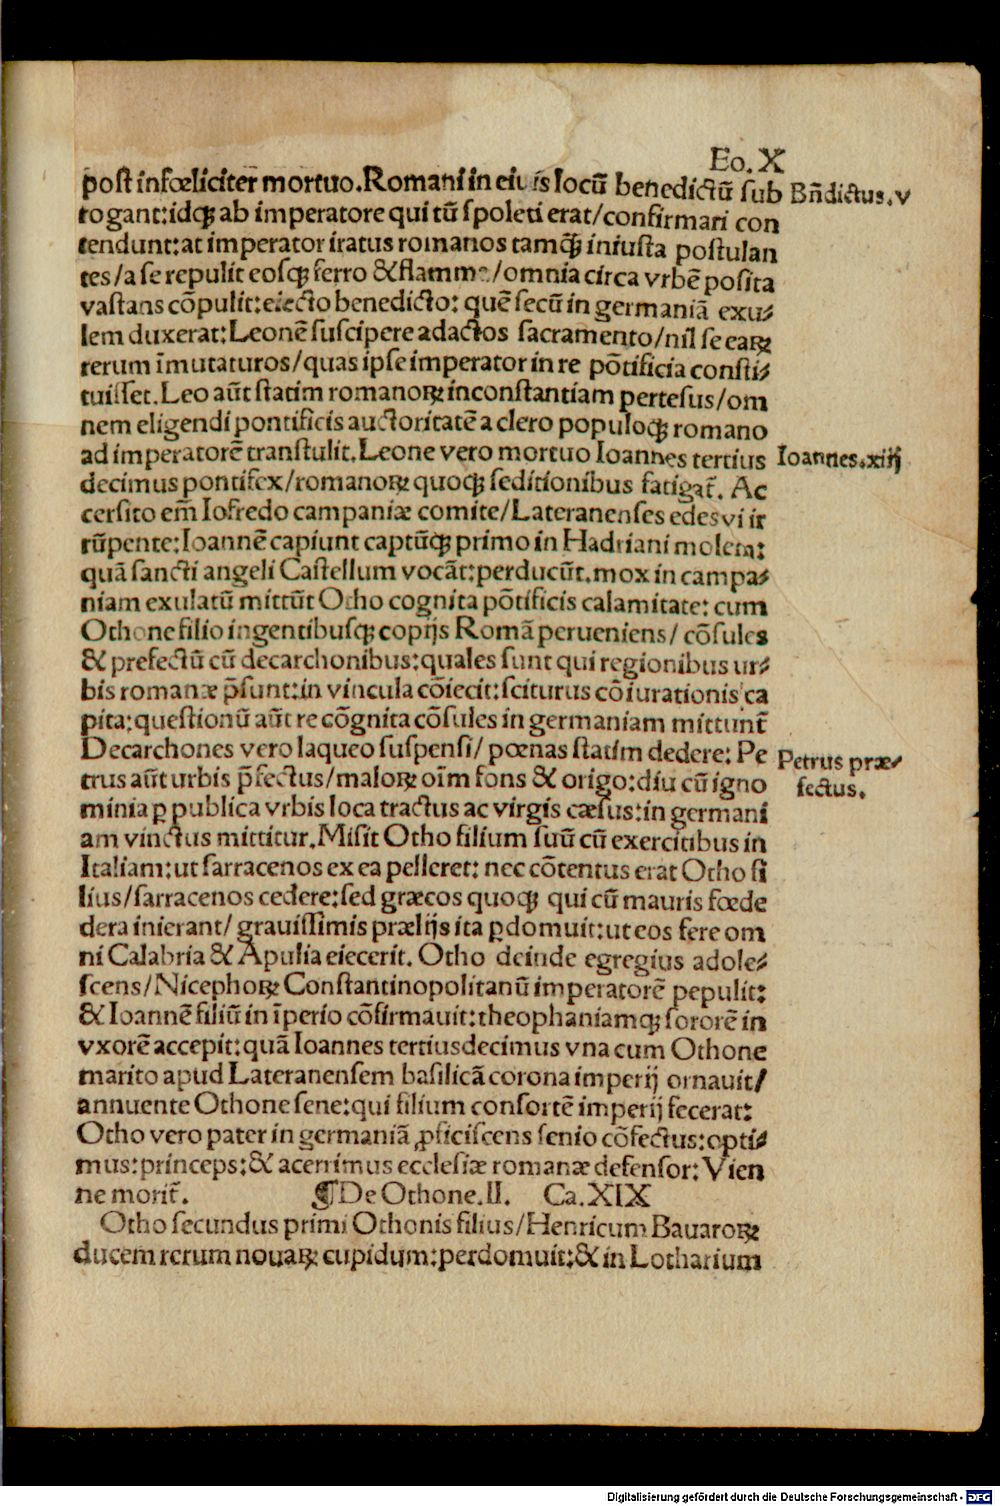 Eo. X
post infœliciter mortuo. Romani in eius locũ benedictũ sub
Bñdictus. v
rogant: idq; ab imperatore qui tũ spoleti erat/ confirmari con
tendunt: at imperator iratus romanos tamq̃ iniusta postulan
tes/ a se repulit eosq; ferro & flamma/ omnia circa vrbẽ posita
vastans cõpulit: eiecto benedicto: quẽ secũ in germaniã exu⸗
lem duxerat: Leonẽ suscipere adactos sacramento/ nil se eaꝝ
rerum ĩmutaturos/ quas ipse imperator in re põtificia consti⸗
tuisset. Leo aũt statim romanoꝝ inconstantiam pertesus/ om
nem eligendi pontificis auctoritatẽ a clero populoq; romano
ad imperatorẽ transtulit. Leone vero mortuo Ioannes tertius
Ioannes. xiij
decimus pontifex/ romanoꝝ quoq; seditionibus fatigat̃. Ac
cersito em̃ Iofredo campaniæ comite/ Lateranenses edes vi ir
rũpente: Ioannẽ capiunt captũq; primo in Hadriani molem:
quã sancti angeli Castellum vocãt: perducũt. mox in campa⸗
niam exulatũ mittũt Otho cognita põtificis calamitate: cum
Othone filio ingentibusq; copijs Romã perueniens/ cõsules
& prefectũ cũ decarchonibus: quales sunt qui regionibus ur⸗
bis romanæ p̃sunt: in vincula cõiecit: sciturus cõiurationis ca
pita: questionũ aũt re cõgnita cõsules in germaniam mittunt̃
Decarchones vero laqueo suspensi/ pœnas statim dedere: Pe
Petrus præ⸗
fectus.
trus aũt urbis p̃fectus/ maloꝝ oĩm fons & origo: diu cũ igno
minia ꝑ publica vrbis loca tractus ac virgis cæsus: in germani
am vinctus mittitur. Misit Otho filium suũ cũ exercitibus in
Italiam: ut sarracenos ex ea pelleret: nec cõtentus erat Otho fi
lius/ sarracenos cedere: sed græcos quoq; qui cũ mauris fœde
dera inierant/ grauissimis prælijs ita ꝑdomuit: ut eos fere om
ni Calabria & Apulia eiecerit. Otho deinde egregius adole⸗
scens/ Nicephoꝝ Constantinopolitanũ imperatorẽ pepulit:
& Ioannẽ filiũ in ĩperio cõfirmauit: theophaniamq; sororẽ in
vxorẽ accepit: quã Ioannes tertiusdecimus vna cum Othone
marito apud Lateranensem basilicã corona imperij ornauit/
annuente Othone sene: qui filium consortẽ imperij fecerat:
Otho vero pater in germaniã ꝓficiscens senio cõfectus: opti⸗
mus: princeps: & acerrimus ecclesiæ romanæ defensor: Vien
ne morit̃. ¶ De Othone. II. Ca. XIX
Otho secundus primi Othonis filius/ Henricum Bauaroꝝ
ducem rerum nouaꝝ cupidum: perdomuit: & in Lotharium
Digitalisierung gefördert durch die Deutsche Forschungsgemeinschaft - DFG